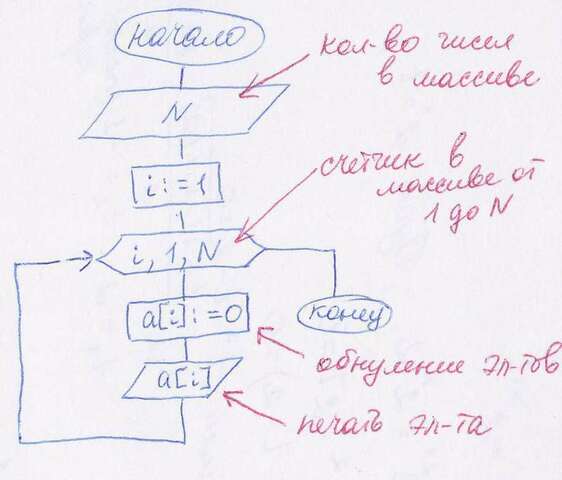 начало
кол-во чисел
в массиве
N
i:=1
счетчик в
массиве от
1 до N
i, 1, N
конец
a[i]:=0
обнуление эл-тов
a[i]
печать эл-та